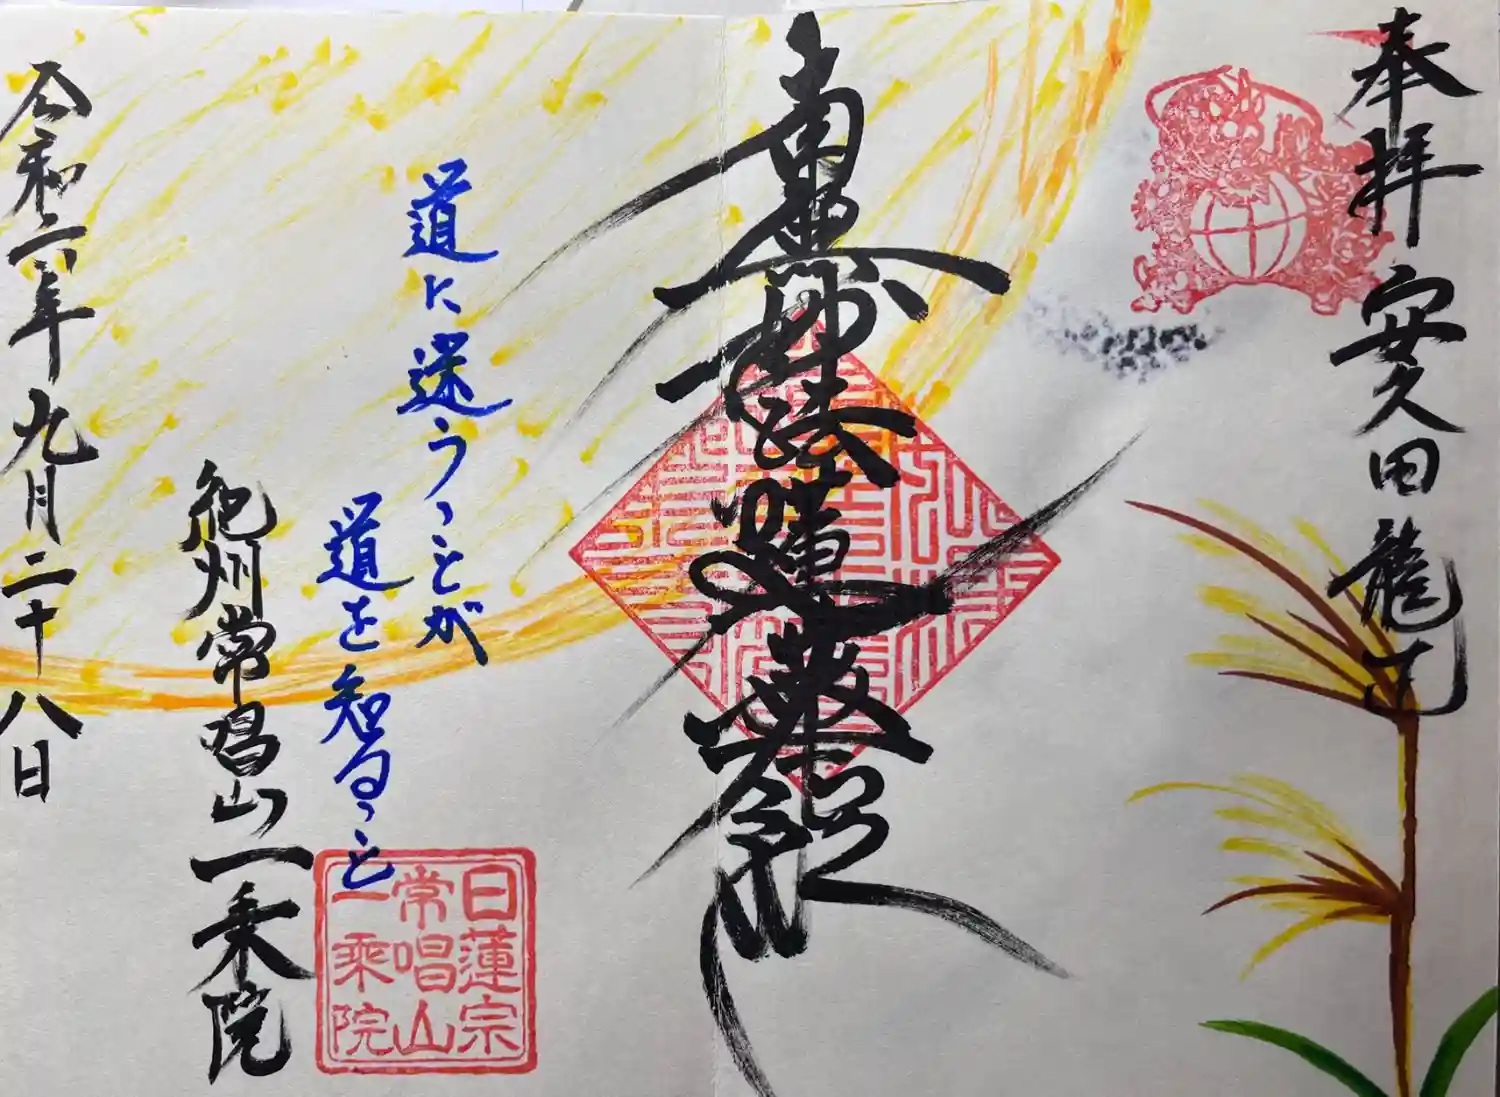 奉拝 安久田 龍
南無妙法蓮華経
道に迷うことが
道を知ること
日蓮宗
常唱山
一乗院
紀州常昌山一乗院
令和六年九月二十八日